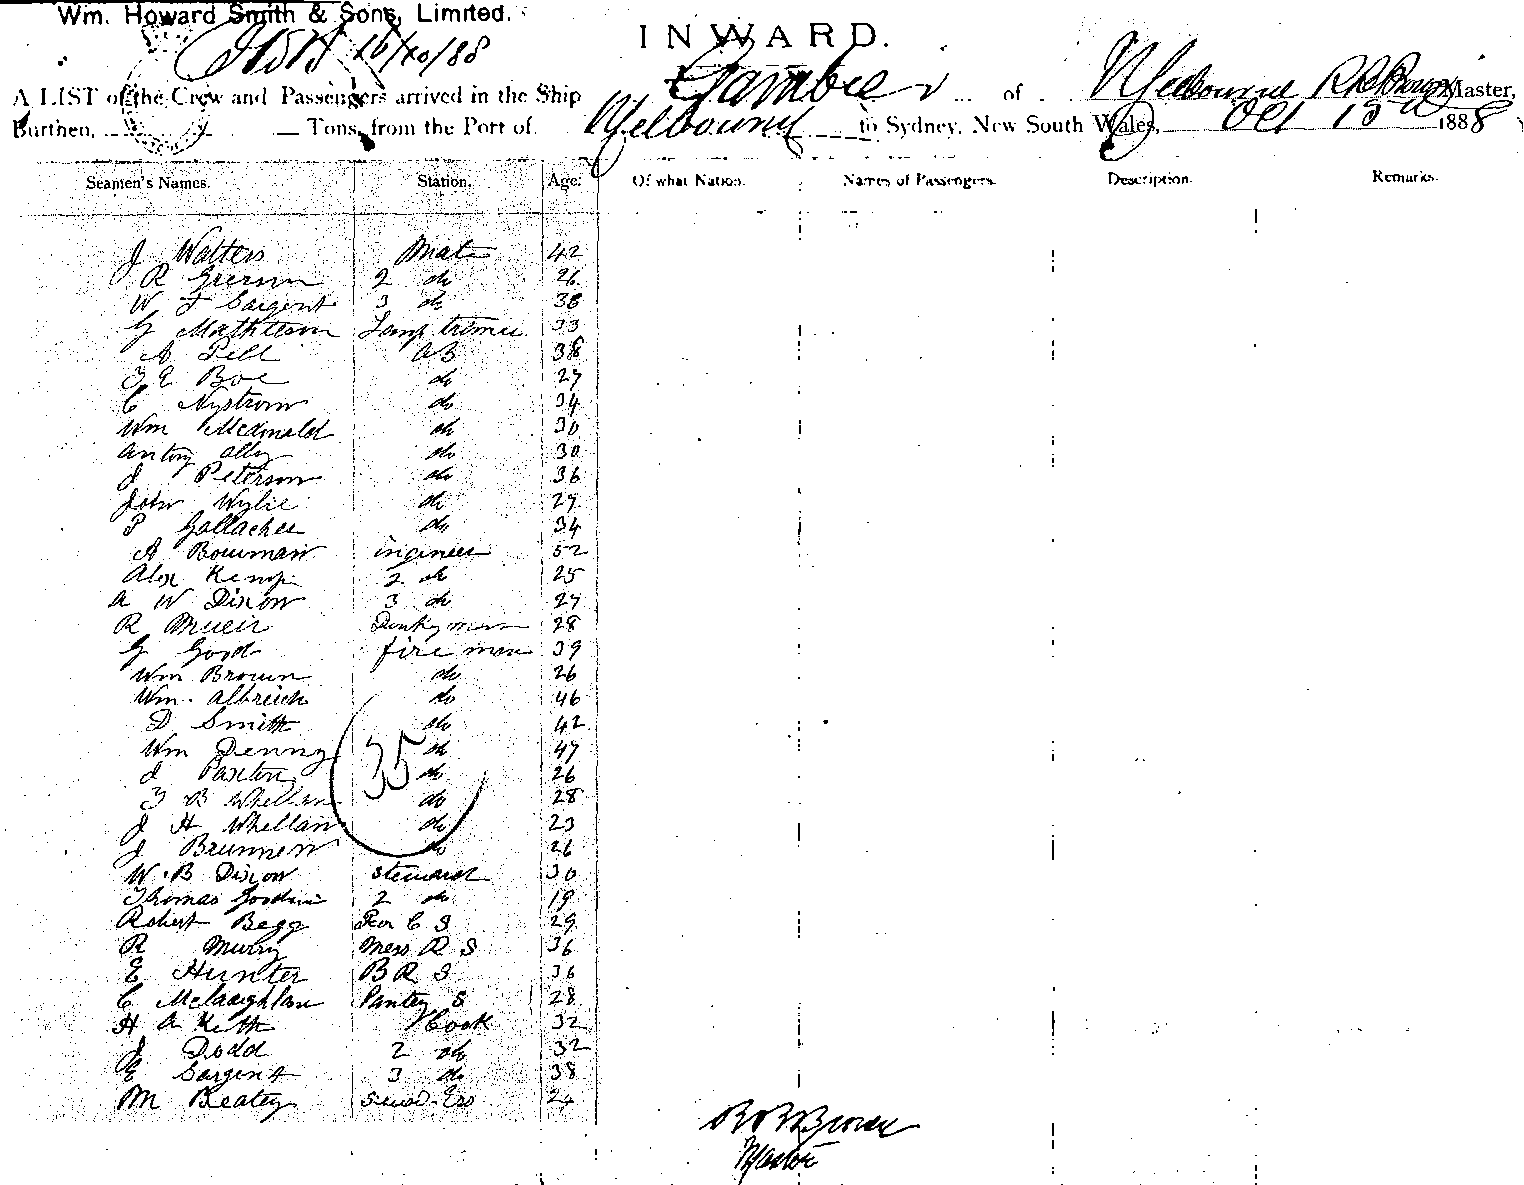 Wm. Howard Smith & Sons, Limited.
16/10/88
INWARD.
A LIST of the Crew and Passengers arrived in the Ship Gambier of Melbourne R B Brown Master,
Burthen, Tons, from the Port of Melbourne to Sydney, New South Wales, Oct 15th 1888
Seamen's Names. Station. Age. Of what Nation. Names of Passengers. Description. Remarks.
J Walters Mate 42
R Grierson 2 do 26
W F Sargent 3 do 38
G Mathieson Lamp trimer 33
A Pell AB 38
J E Boe do 27
C Nystrom do 34
Wm McDonald do 30
Antony Ally do 30
J Peterson do 36
John Wylie do 27
P Gallacher do 34
A Bowman ingineer 52
Alex Kemp 2 do 25
A W Dixon 3 do 27
R Mueir Donkey man 28
G Good fire man 39
Wm Brown do 26
Wm. Albreich do 46
D Smith do 42
Wm Denny do 47
J Paxton do 26
35
J B Whellan do 28
J H Whellan do 23
J Brunnen do 26
W. B Dixon steward 30
Thomas Goodwin 2 do 19
Robert Begg For C S 29
R Murry Mess R S 36
E Hunter B R S 36
C McLaughlan Pantry S 28
H A Keith Cook 32
J Dodd 2 do 32
E Sargent 3 do 38
M Beatey Stewd. Ess 24
R B Brown
Master